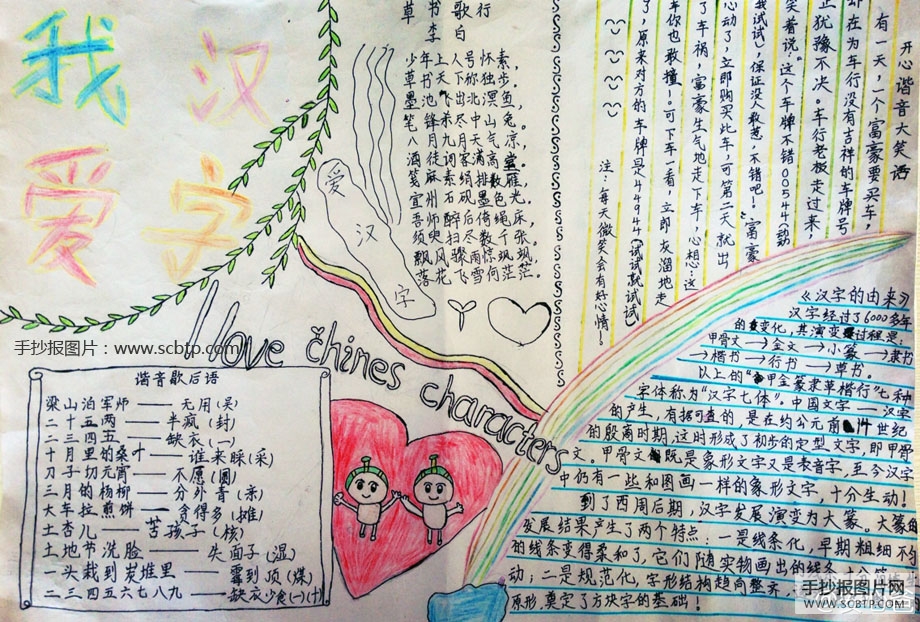 我
爱
汉
字
草书歌行
李白
少年上人号怀素,
草书天下称独步。
墨池飞出北溟鱼,
笔锋杀尽中山兔。
八月九月天气凉,
酒徒词客满高堂。
笺麻素绢排数厢,
宣州石砚墨色光。
吾师醉后倚绳床,
须臾扫尽数千张。
飘风骤雨惊飒飒,
落花飞雪何茫茫。
爱
汉
字
开心谐音大笑话
有一天,一个富豪要买车,
却在为车行没有吉祥的车牌号
正犹豫不决。车行老板走过来
笑着说:“这个车牌不错00544(动
我试试),保证没人敢惹,不错吧!”富豪
心动了,立即购买此车,可第二天就出
了车祸,富豪生气地走下车,心想:这
车你也敢撞!可下车一看,立即灰溜地走
了,原来对方的车牌是4494(试试就试试)
注:每天微笑会有好心情!
I love chines characters
谐音歇后语
梁山泊军师——无用(吴)
二十五两——半疯(封)
二三四五。——缺衣(一)
十月里的桑叶——谁来睬(采)
刀子切元宵——不愿(圆)
三月的杨柳——分外青(亲)
大车拉煎饼——贪得多(摊)
土杏儿——苦孩子(核)
土地爷洗脸——失面子(湿)
一头栽到炭堆里——霉到顶(煤)
二三四五六七八九——缺衣少食(一)(十)
《汉字的由来》
汉字经过了6000多年
的变化,其演变过程是:
甲骨文→金文→小篆→隶书
→楷书→行书→草书。
以上的“甲金篆隶草楷行”七种
字体称为“汉字七体”。中国文字——汉字
的产生,有据可查的,是在约公元前14世纪
的殷商时期,这时形成了初步的定型文字,即甲骨
文。甲骨文既是象形文字又是表音字,至今汉字
中仍有一些和图画一样的象形文字,十分生动!
到了西周后期,汉字发展演变为大篆。大篆的
发展结果产生了两个特点:一是线条化,早期粗细不匀
的线条变得柔和了,它们随实物画出的线条
动;二是规范化,字形结构趋向整齐,
原形,奠定了方块字的基础!
手抄报图片:www.scbtp.com
手抄报图片网
WWW.SCBTP.COM